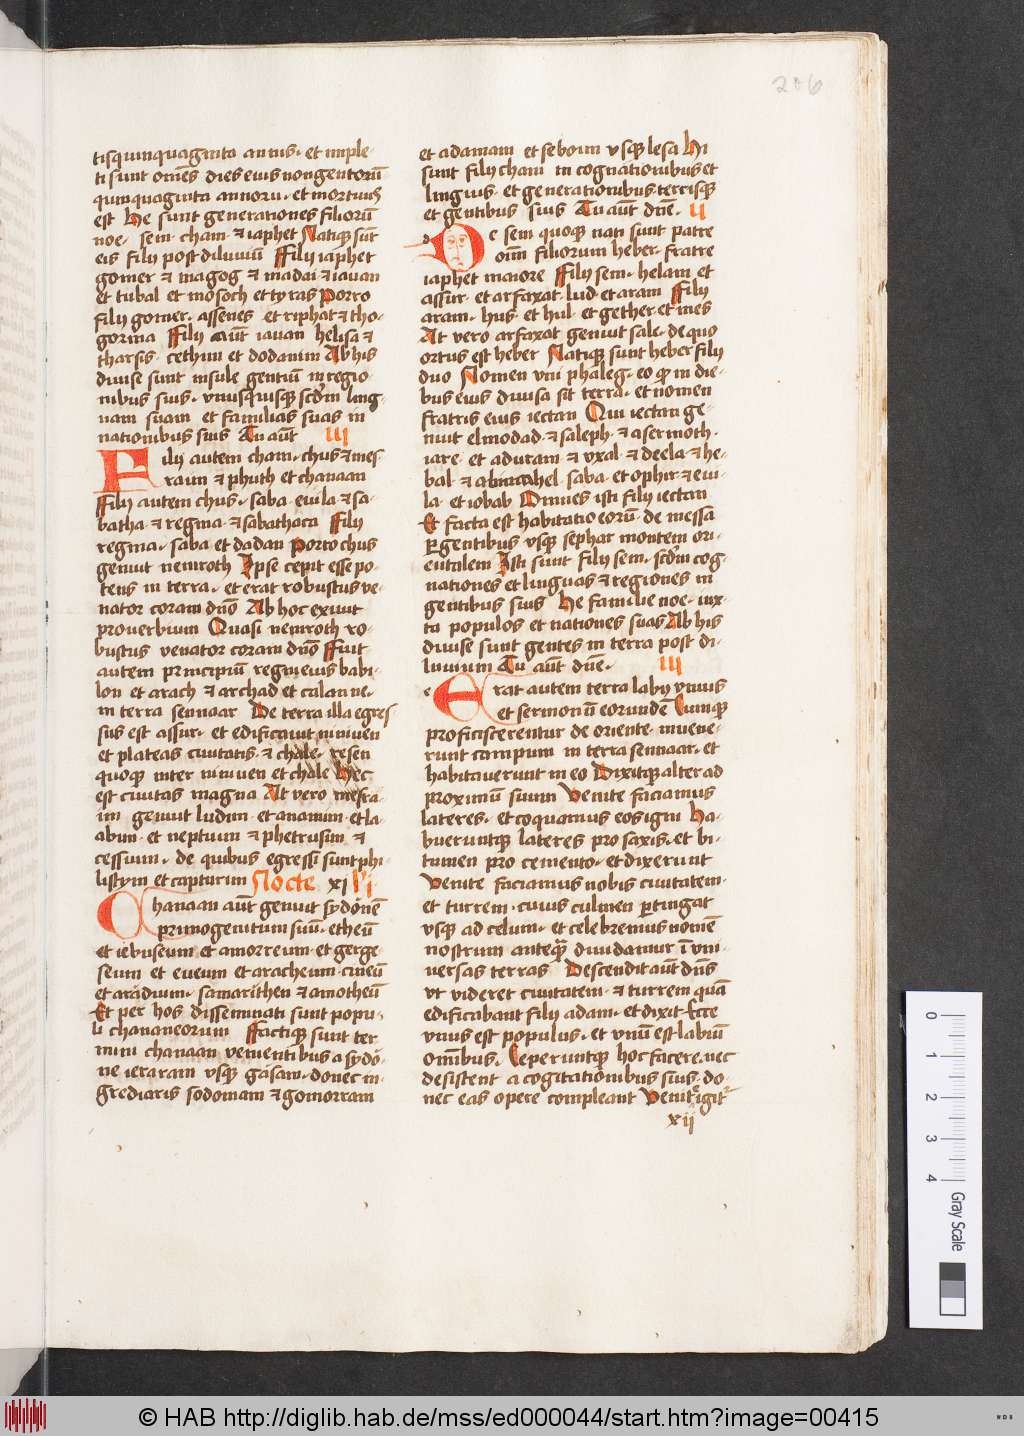 206
tisquinquaginta annis · et imple-
ti sunt om̄es dies eius nongentorū
quinquaginta annorū · et mortuus
est He sunt generationes filiorū
noe · sem cham · ⁊ iaphet Natiqꝫ sūt
eis filij post diluuiū Filij iaphet
gomer ⁊ magog ⁊ madai ⁊ iauan
et tubal et mosoch et tyras Porro
filij gomer · assenes et riphat ⁊ tho-
gorma Filij aūt iauan helisa ⁊
tharsis · cethim et dodanim Ab his
diuise sunt insule gentiū in regio-
nibus suis · vnusquisqꝫ scd̄m ling-
uam suam et familias suas in
nationibus suis Tu aūt III
Filij autem cham · chus ⁊ mes-
raim ⁊ phuth et chanaan
Filij autem chus · saba euila ⁊ sa-
batha · ⁊ regma · ⁊ sabathaca Filij
regma · saba et dadan Porro chus
genuit nemroth Ipse cepit esse po-
tens in terra · et erat robustus ve-
nator coram dn̄o Ab hoc exiuit
prouerbium Quasi nemroth ro-
bustus venator coram dn̄o Fuit
autem principiū regni eius babi-
lon et arach ⁊ archad et calanne ·
in terra sennaar De terra illa egres-
sus est assur · et edificauit niniuen
et plateas ciuitatis · ⁊ chale · resen
quoqꝫ inter niniuen et chale Hec
est ciuitas magna At vero mesra-
im genuit ludim · et anamim · et la-
abim · et neptuim ⁊ phetrusim ⁊
cessuim · de quibus egressi sunt phi-
listym et capturim Nocte xi Pi
Chanaan aūt genuit sydonē
primogenitum suū · etheū
et iebuseum et amorreum · et gerge-
seum et eueum et aracheum · cineū
et aradium · samarithen ⁊ amotheū
Et per hos disseminati sunt popu-
li chananeorum Factiqꝫ sunt ter-
mini chanaan venientibus a sydo-
ne ieraram vsqꝫ gasam · donec in-
grediaris sodomam ⁊ gomorram
et adamam et seboim vsqꝫ lesa Hi
sunt filij cham in cognationibus et
linguis · et generationibus terrisqꝫ
et gentibus suis Tu aūt dn̄e · II
De sem quoqꝫ nati sunt patre
oīm filiorum heber · fratre
iaphet maiore Filij sem · helam et
assur · et arfaxat · lud · et aram Filij
aram · hus · et hul · et gether · et mes
At vero arfaxat genuit sale · de quo
ortus est heber Natiqꝫ sunt heber filij
duo Nomen vni phaleg · eo qꝫ in die-
bus eius diuisa sit terra · et nomen
fratris eius iectan Qui iectan ge-
nuit elmodad · ⁊ saleph · ⁊ asermoth ·
iare · et aduram ⁊ vxal ⁊ decla · ⁊ he-
bal ⁊ abimahel · saba · et ophir · ⁊ eui-
la · et iobab Omnes isti filij iectan
Et facta est habitatio eorū · de messa
ꝑgentibus vsqꝫ sephar montem ori-
entalem Isti sunt filij sem · scd̄m cog-
nationes et linguas ⁊ regiones in
gentibus suis He familie noe · iux-
ta populos et nationes suas Ab his
diuise sunt gentes in terra post di-
luuium Tu aūt dn̄e · III
Erat autem terra labij vnius
et sermonū eorundē Cumqꝫ
proficiscerentur de oriente · inuene-
runt campum in terra sennaar · et
habitauerunt in eo Dixitqꝫ alter ad
proximū suum Venite faciamus
lateres · et coquamus eos igni Ha-
bueruntqꝫ lateres pro saxis · et bi-
tumen pro cemento · et dixerunt
Venite faciamus nobis ciuitatem ·
et turrem · cuius culmen ꝑtingat
vsqꝫ ad celum · et celebremus nomē
nostrum anteqꝫ diuidamur ī vni-
uersas terras Descendit aūt dn̄s
vt videret ciuitatem · ⁊ turrem quā
edificabant filij adam · et dixit Ecce
vnus est populus · et vnū est labiū
om̄ibus · Ceperuntqꝫ hoc facere · nec
desistent a cogitationibus suis · do-
nec eas opere compleant Venite igit᷑
xij
0 1 2 3 4
Gray Scale
© HAB http://diglib.hab.de/mss/ed000044/start.htm?image=00415